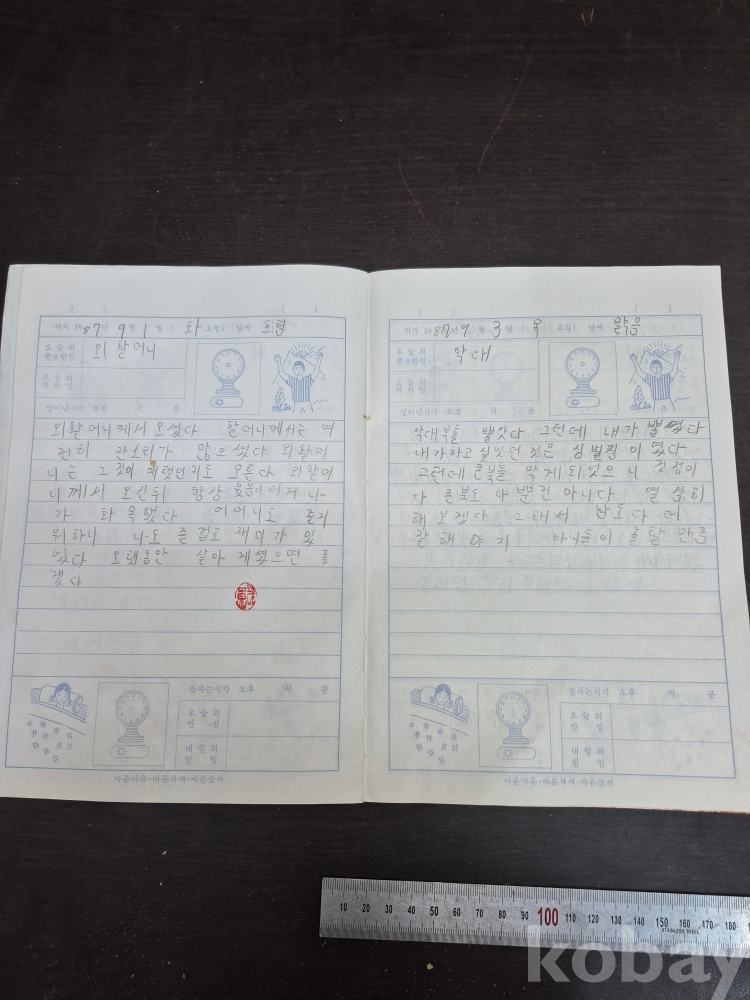 ( ) ( )
서기 1987년 9월 1일 (화요일) 날씨 흐림
오늘의 중요한일 외 할머니
오늘의 착한일
일어난시각 오전 시 분
외할머니께서 오셨다 할머니께서는 여
전히 잔소리가 많으셨다 외할머
니는 그것이
니께서 오신뒤 항상
가 화목했다 어머니도 즐거
워하니 나도 즐겁고 재미가 있
었다 오랫동안 살아 계셨으면 좋
겠다
잠자는시각 오후 시 분
오늘의 반성
내일의 할일
바른마음·바른자세·바른글씨
( ) ( )
서기 1987년 9월 3일 (목요일) 날씨 맑음
오늘의 중요한일 악대
오늘의 착한일
일어난시각 오전 시 분
악대부를 뽑았다 그런데 내가 뽑혔다
내가하고 싶었던 것은 심벌찐이 였다
그런데 큰북을 맞게되었으 니 걱정이
다 큰북도 나뿐만 아니다 열심히
해 보겠다 그래서 남보다 더
잘 해 야지 아이들이 놀랄 만큼
잠자는시각 오후 시 분
오늘의 반성
내일의 할일
바른마음·바른자세·바른글씨
10 20 30 40 50 60 70 80 90 100 110 120 130 140 150 160 170 180
STAINLESS STEEL
kobay